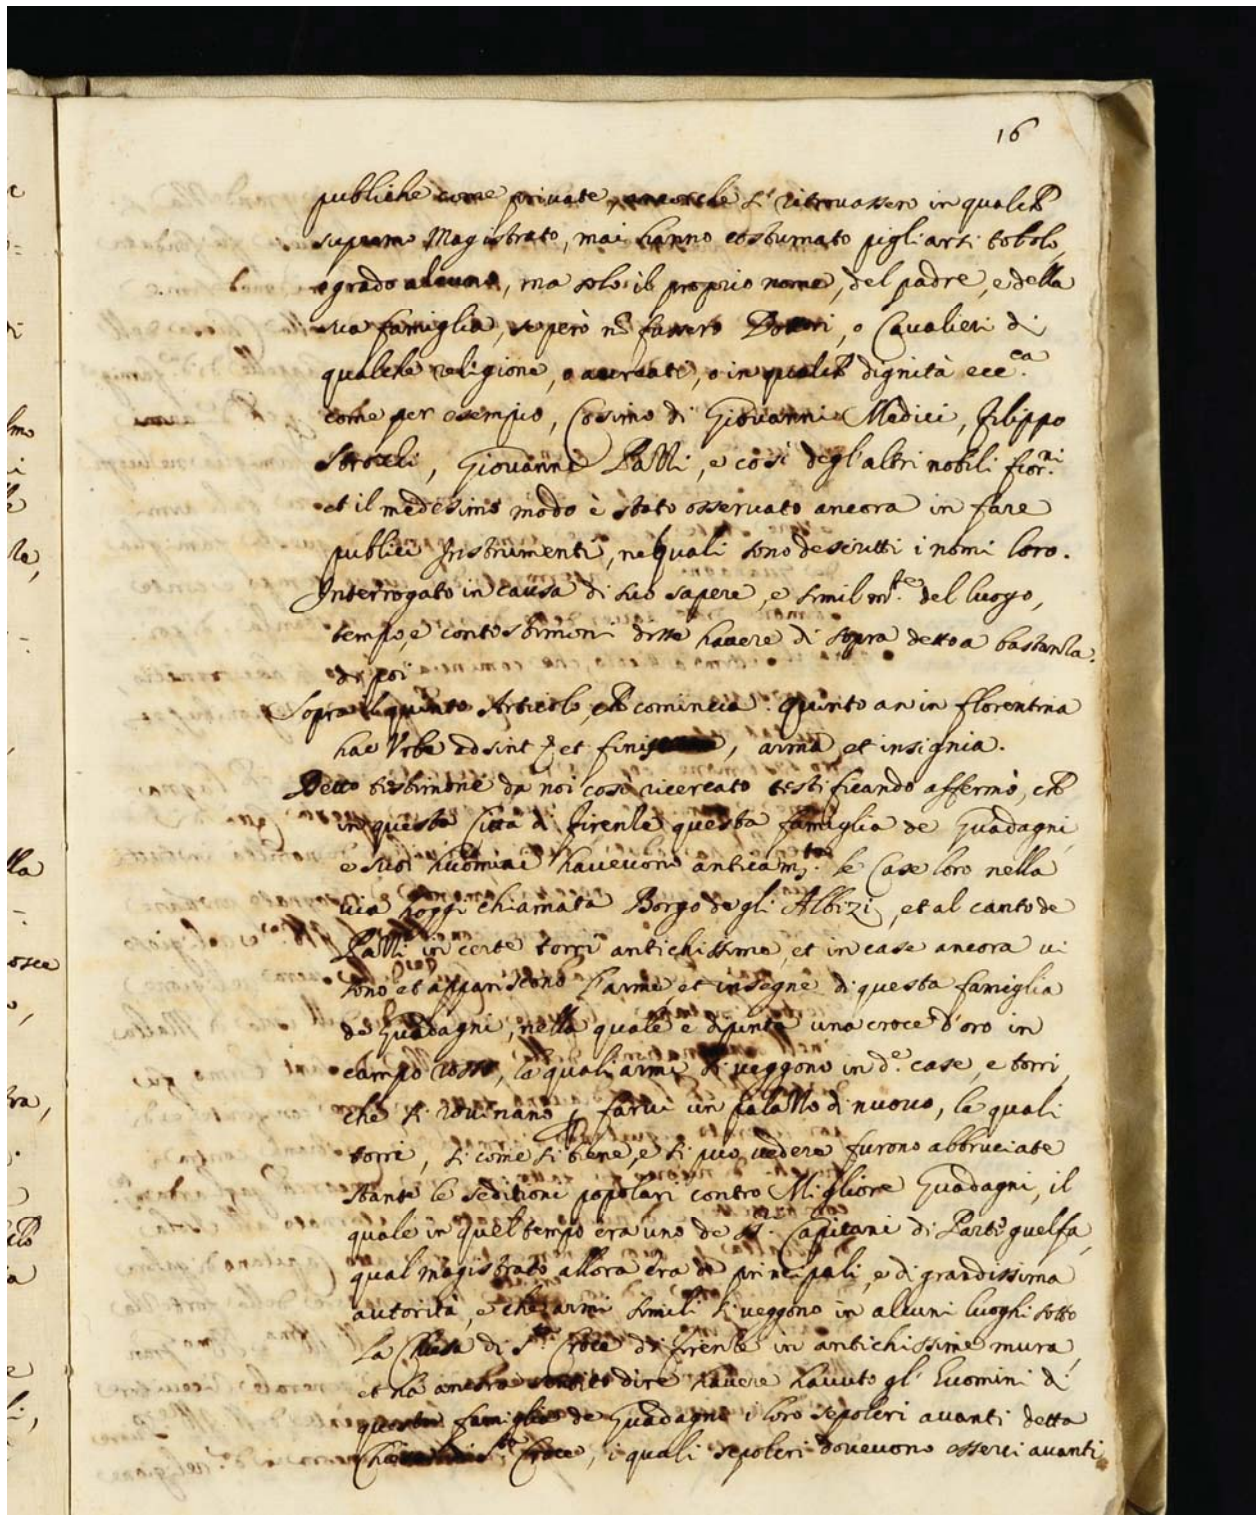 16
publiche come private, ancorche si ritrovassero in qualch
supremo Magistrato, mai hanno costumato pigliarsi titolo,
o grado alcuno, ma solo il proprio nome, del padre, e della
sua famiglia, se però nõ fussero Dottori, o Cavalieri di
qualche religione, o aureati, o in qualch dignità ecc.ca
come per esempio, Cosimo di Giovanni Medici, Filippo
Strozzi, Giovanni Pazzi, e così degl'altri nobili fior.ni
et il medesimo modo è stato osservato ancora in fare
publici Instrumenti, ne quali sono descritti i nomi loro.
Interrogato in causa di suo sapere, e similm.te del luogo,
tempo, e contestimoni disse havere di sopra detto a bastanza.
di poi
Sopra il quinto Articolo, ch comincia. Quinto an in florentina
hac Urbe adsint et finis, arma et insignia.
Detto testimone da noi così ricercato testificando affermò, ch
in questa Città di Firenze questa famiglia de Guadagni
e suoi huomini havevono anticam.te le Case loro nella
via hoggi chiamata Borgo degli Albizi, et al canto de
Pazzi in certe torri antichissime, et in case ancora vi
sono et appariscono l'arme, et insegne di questa famiglia
de Guadagni, nella quale è dipinta una croce d'oro in
campo rosso, le quali armi si veggono in d.e case, e torri,
che si rovinano p farvi un palazzo di nuovo, le quali
torri, si come si tiene, e si può vedere furono abbruciate
stante le seditioni popolari contro Migliore Guadagni, il
quale in quel tempo era uno de SS.ri Capitani di Parte guelfa,
qual magistrato allora era de principali, e di grandissima
autorità, e che armi simili si veggono in alcuni luoghi sotto
La Chiesa di S.ta Croce di Firenze in antichissime mura,
et ha ancora sentito dire havere havuto gl'huomini di
questa famiglia de Guadagni i loro sepolcri avanti detta
Chiesa di S.ta Croce, i quali sepolcri dovevono esservi avanti